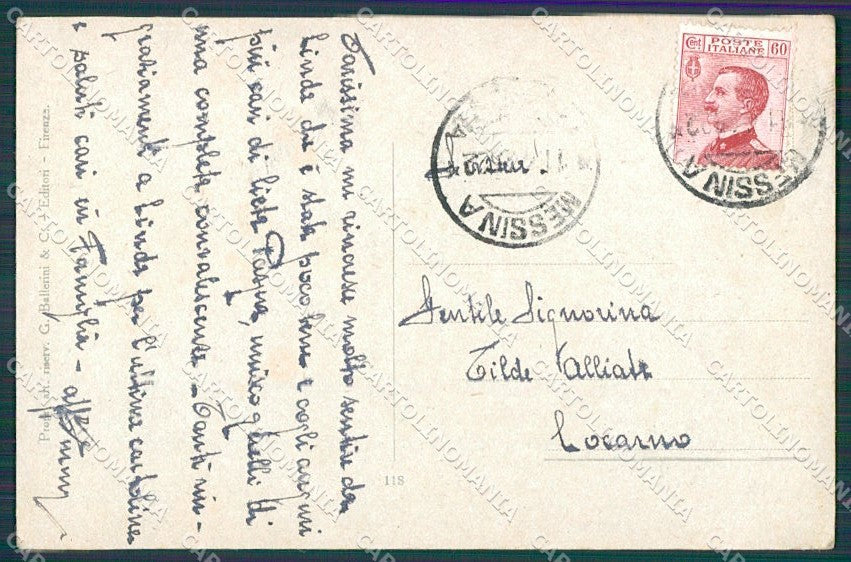 Carissima mi rincresce molto sentire da
Linda che è stata poco bene e cogli auguri
più cari di lieta Pasqua, unisco quelli di
una completa convalescenza - Tanti rin-
graziamenti a Linda per l'ultima cartolina
e saluti cari in Famiglia - aff.
Propr. art. riserv. G. Ballerini & C. - Editori - Firenze.
118
Cent. POSTE ITALIANE 60
MESSINA
MESSINA
Svizzera
Gentile Signorina
Tilde Alliati
Locarno
CARTOLINOMANIA